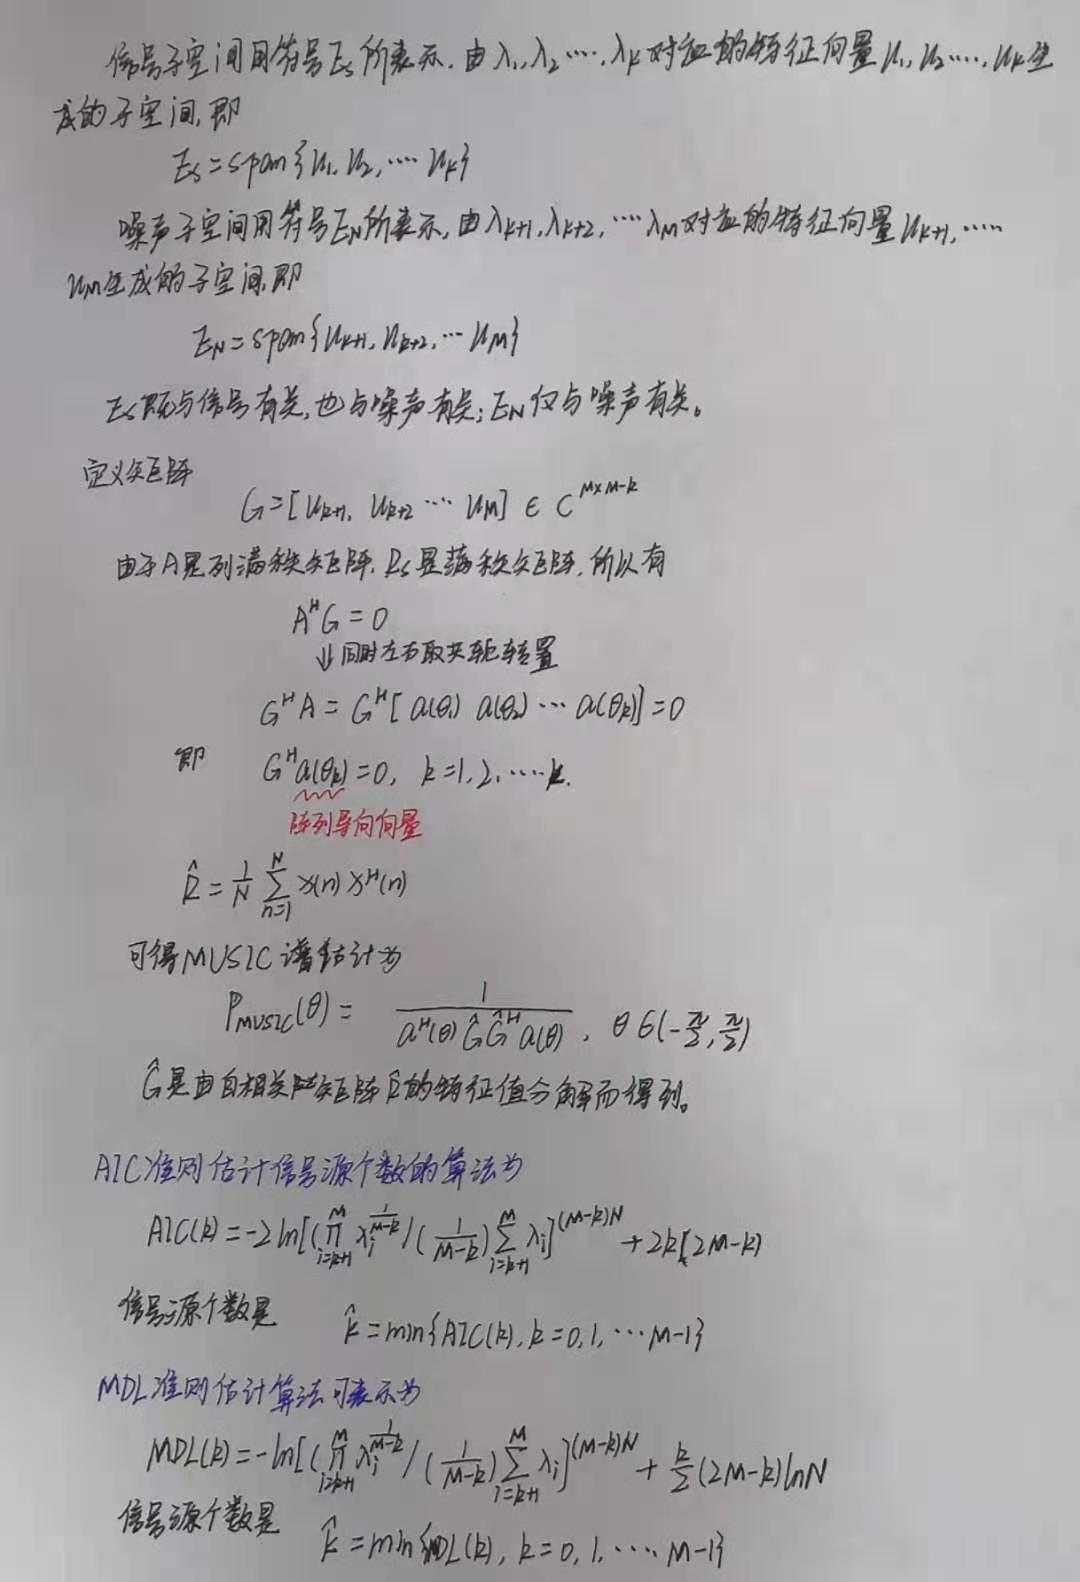 信号子空间用符号Es所表示,由λ₁,λ₂……λK对应的特征向量u₁,u₂……,uK生
成的子空间,即
Es=span{u₁,u₂,……uK}
噪声子空间用符号EN所表示,由λK+1,λK+2,……λM对应的特征向量uK+1,……
uM生成的子空间,即
EN=span{uK+1,uK+2,…uM}
Es既与信号有关,也与噪声有关;EN仅与噪声有关。
定义矩阵
G=[uK+1, uK+2 … uM] ∈ C^{M×M-K}
由于A是列满秩矩阵,Rs是满秩矩阵,所以有
AᴴG=0
⇓同时左右取共轭转置
GᴴA=Gᴴ[a(θ₁) a(θ₂)…a(θK)]=0
即 Gᴴa(θk)=0, k=1,2,……K.
阵列导向向量
R̂=1/N ∑_{n=1}^{N} x(n)xᴴ(n)
可得MUSIC谱估计为
P_MUSIC(θ)= 1/(aᴴ(θ)ĜĜᴴa(θ)), θ∈(-π/2,π/2)
Ĝ是由自相关矩阵R̂的特征值分解而得到。
AIC准则估计信号源个数的算法为
AIC(k)=-2ln[(∏_{i=k+1}^{M} λi^{1/(M-k)}/(1/(M-k))∑_{i=k+1}^{M} λi]^{(M-k)N}+2k(2M-k)
信号源个数是 k̂=min{AIC(k),k=0,1,…M-1}
MDL准则估计算法可表示为
MDL(k)=-ln[(∏_{i=k+1}^{M} λi^{1/(M-k)}/(1/(M-k))∑_{i=k+1}^{M} λi]^{(M-k)N}+k/2(2M-k)lnN
信号源个数是 k̂=min{MDL(k),k=0,1,……M-1}